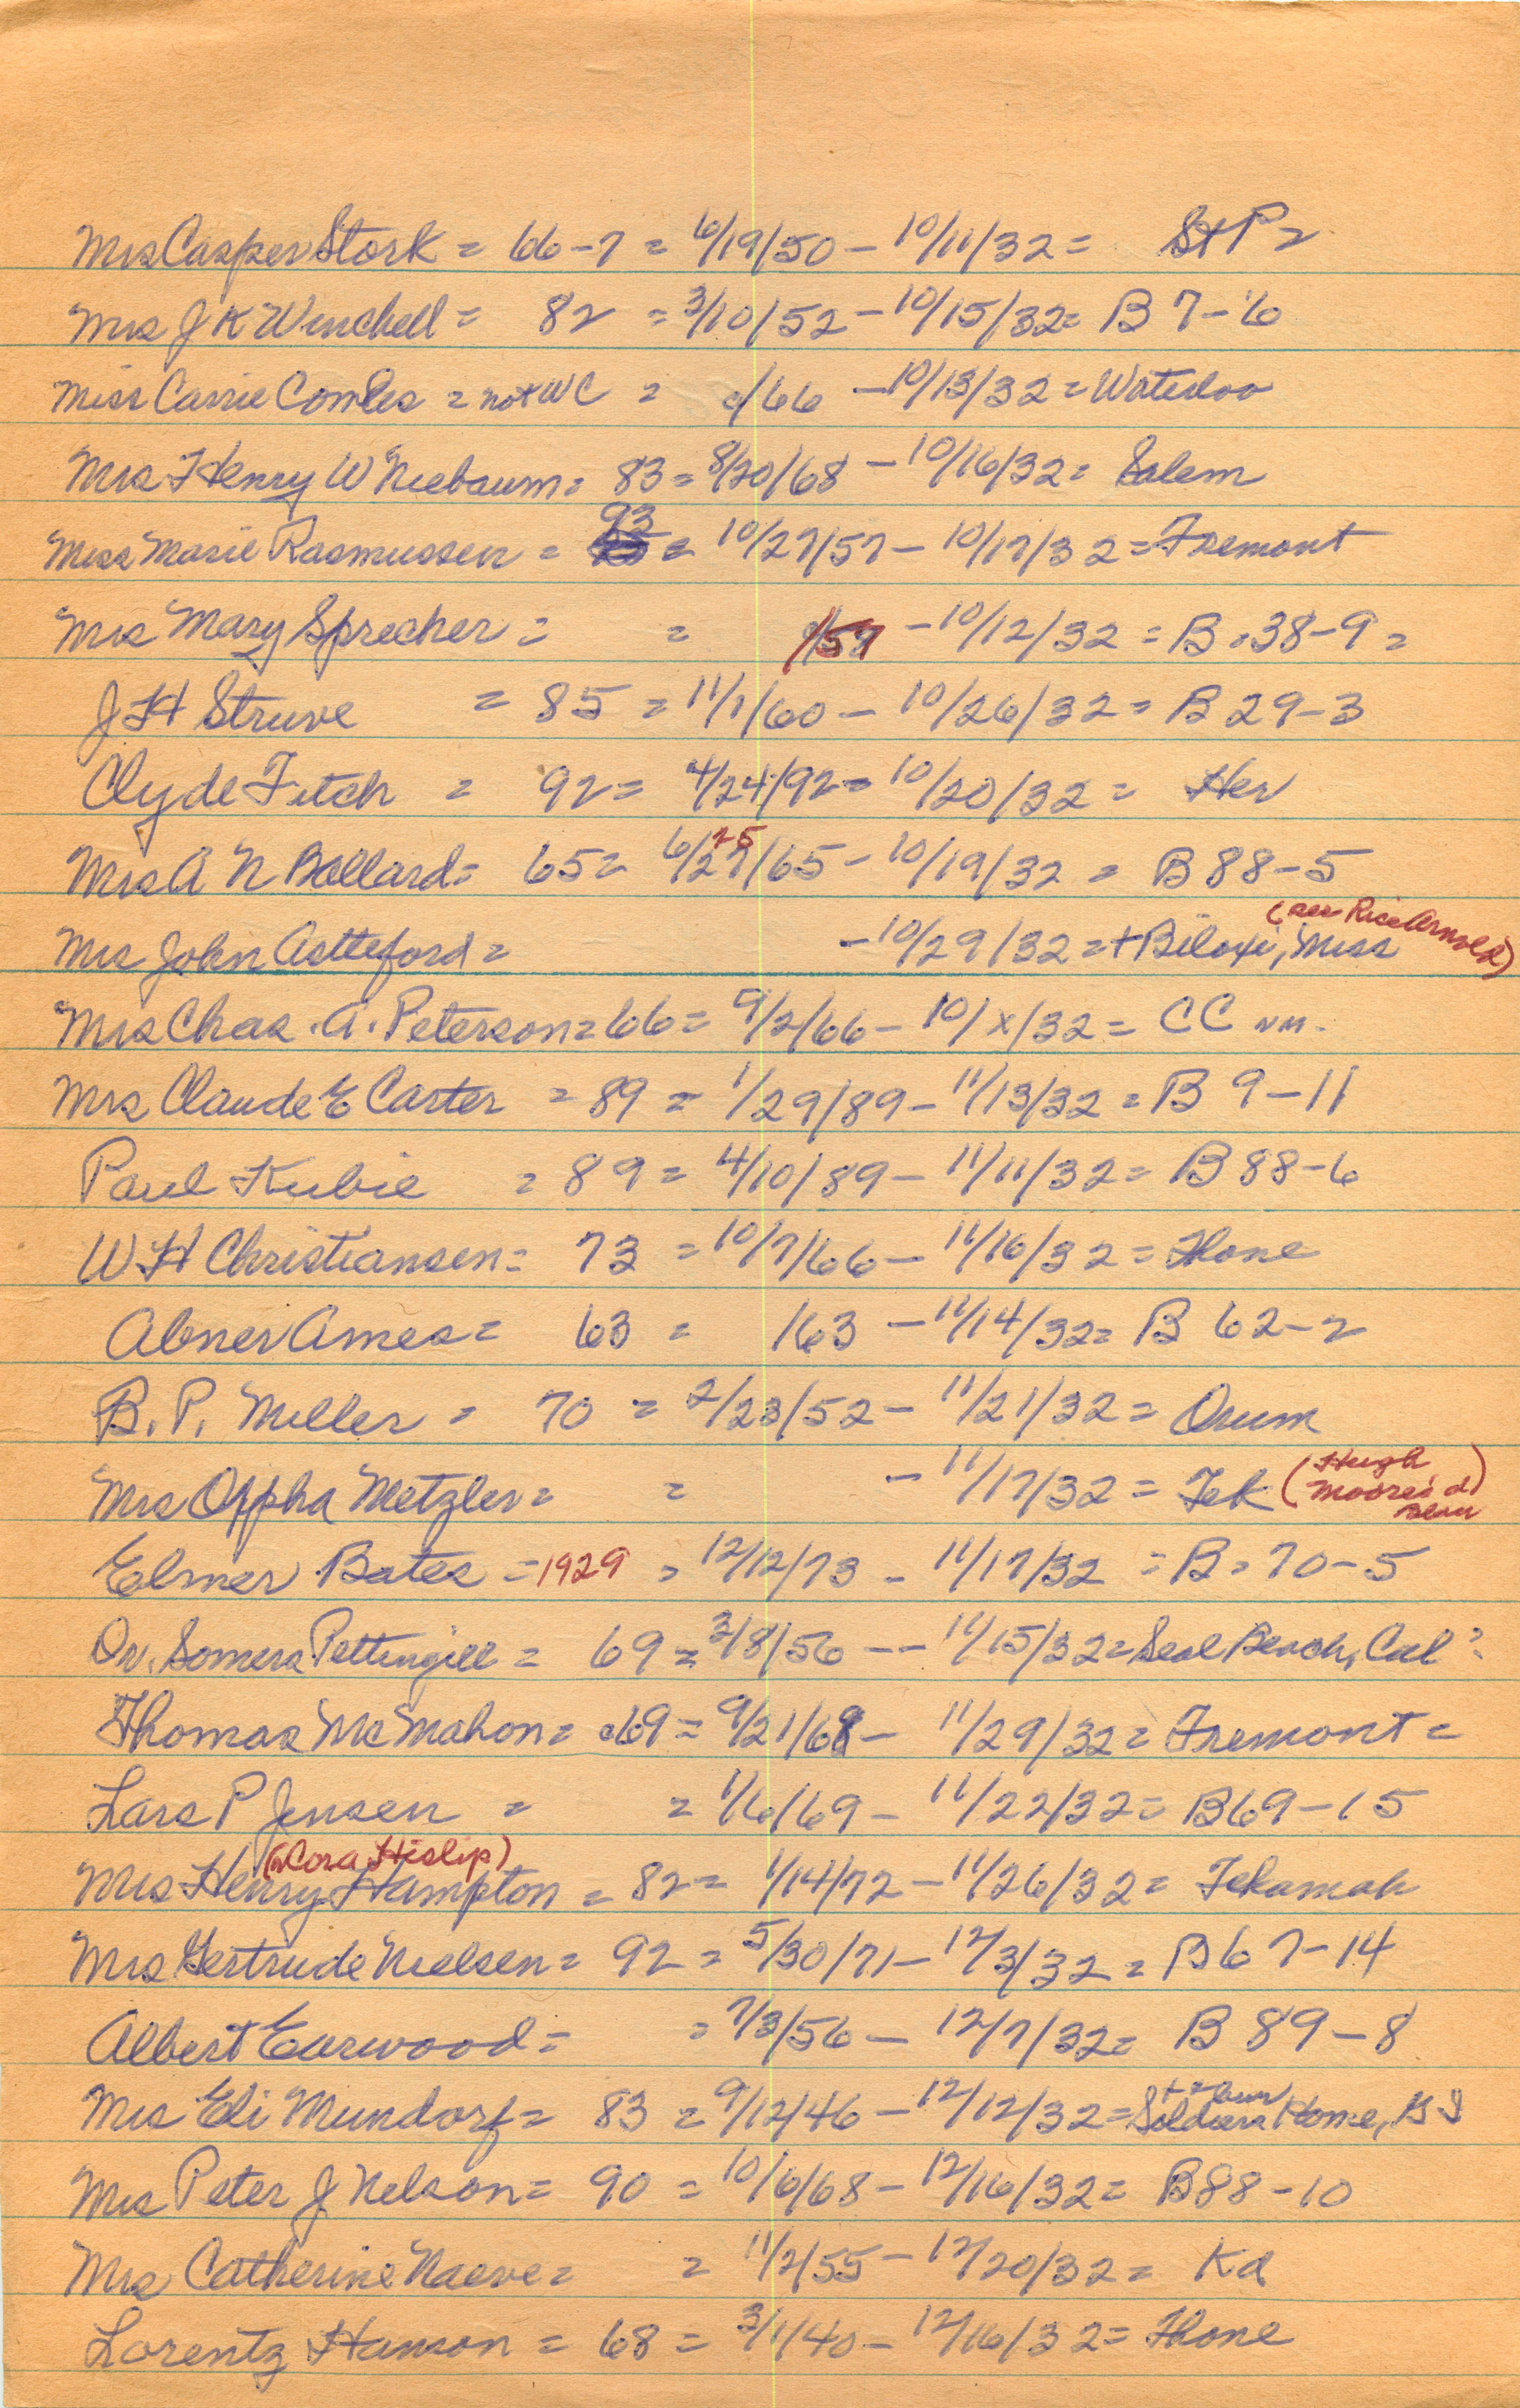 Mrs Casper Stork = 66-7 = 6/19/50 - 10/11/32 = St P =
Mrs J K Winchell = 82 = 3/10/52 - 10/15/32 = B 7-6
Miss Carrie Combes = not WC = /66 - 10/13/32 = Waterloo
Mrs Henry W Niebaum = 83 = 8/20/68 - 10/16/32 = Salem
93
Miss Marie Rasmussen = = 10/27/57 - 10/17/32 = Fremont
Mrs Mary Sprecher = = /57 - 10/12/32 = B = 38-9 =
J H Struve = 85 = 11/1/60 - 10/26/32 = B 29-3
Clyde Fitch = 92 = 4/24/92 = 10/20/32 = Her
25
Mrs A N Ballard = 65 = 6/27/65 - 10/19/32 = B 88-5
(see Rice Arnold)
Mrs John Astleford = - 10/29/32 = + Biloxi, Miss
Mrs Chas. A. Peterson = 66 = 9/2/66 - 10/x/32 = CC
Mrs Claude E Carter = 89 = 1/29/89 - 11/13/32 = B 9-11
Paul Kubie = 89 = 4/10/89 - 11/11/32 = B 88-6
W H Christiansen = 73 = 10/7/66 - 11/16/32 = Hone
Abner Ames = 63 = /63 - 11/14/32 = B 62-2
B. P. Miller = 70 = 2/23/52 - 11/21/32 = Orum
Mrs Oppha Metzler = = - 11/17/32 = Tek (Hugh Moore's d)
Elmer Bates = 1929 = 12/12/73 - 11/17/32 = B = 70-5
Dr. Somers Pettingill = 69 = 3/8/56 -- 11/15/32 = Seal Beach, Cal?
Thomas McMahon = 69 = 9/21/68 - 11/29/32 = Fremont =
Lars P Jensen = = 1/6/69 - 11/22/32 = B69-15
(n Cora Hislip)
Mrs Henry Hampton = 82 = 1/14/72 - 11/26/32 = Tekamah
Mrs Gertrude Nielsen = 92 = 5/30/71 - 12/3/32 = B 67-14
Albert Earwood = = 7/3/56 - 12/7/32 = B 89-8
Mrs Eli Mundorf = 83 = 9/12/46 - 12/12/32 = Soldiers Home, G I
Mrs Peter J Nelson = 90 = 10/6/68 - 12/16/32 = B88-10
Mrs Catherine Naeve = = 11/2/55 - 12/20/32 = Ka
Lorentz Hanson = 68 = 3/1/40 - 12/16/32 = Hone